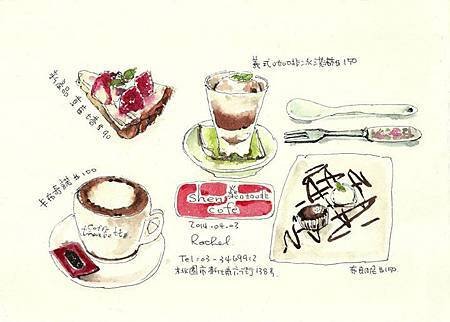 義式咖啡冰淇淋$150
草莓塔$90
卡布奇諾$100
Shen
Cafe
2014.04.03
Rachel
Tel:03-3469912
桃園市新埔六街138號
布朗尼$150